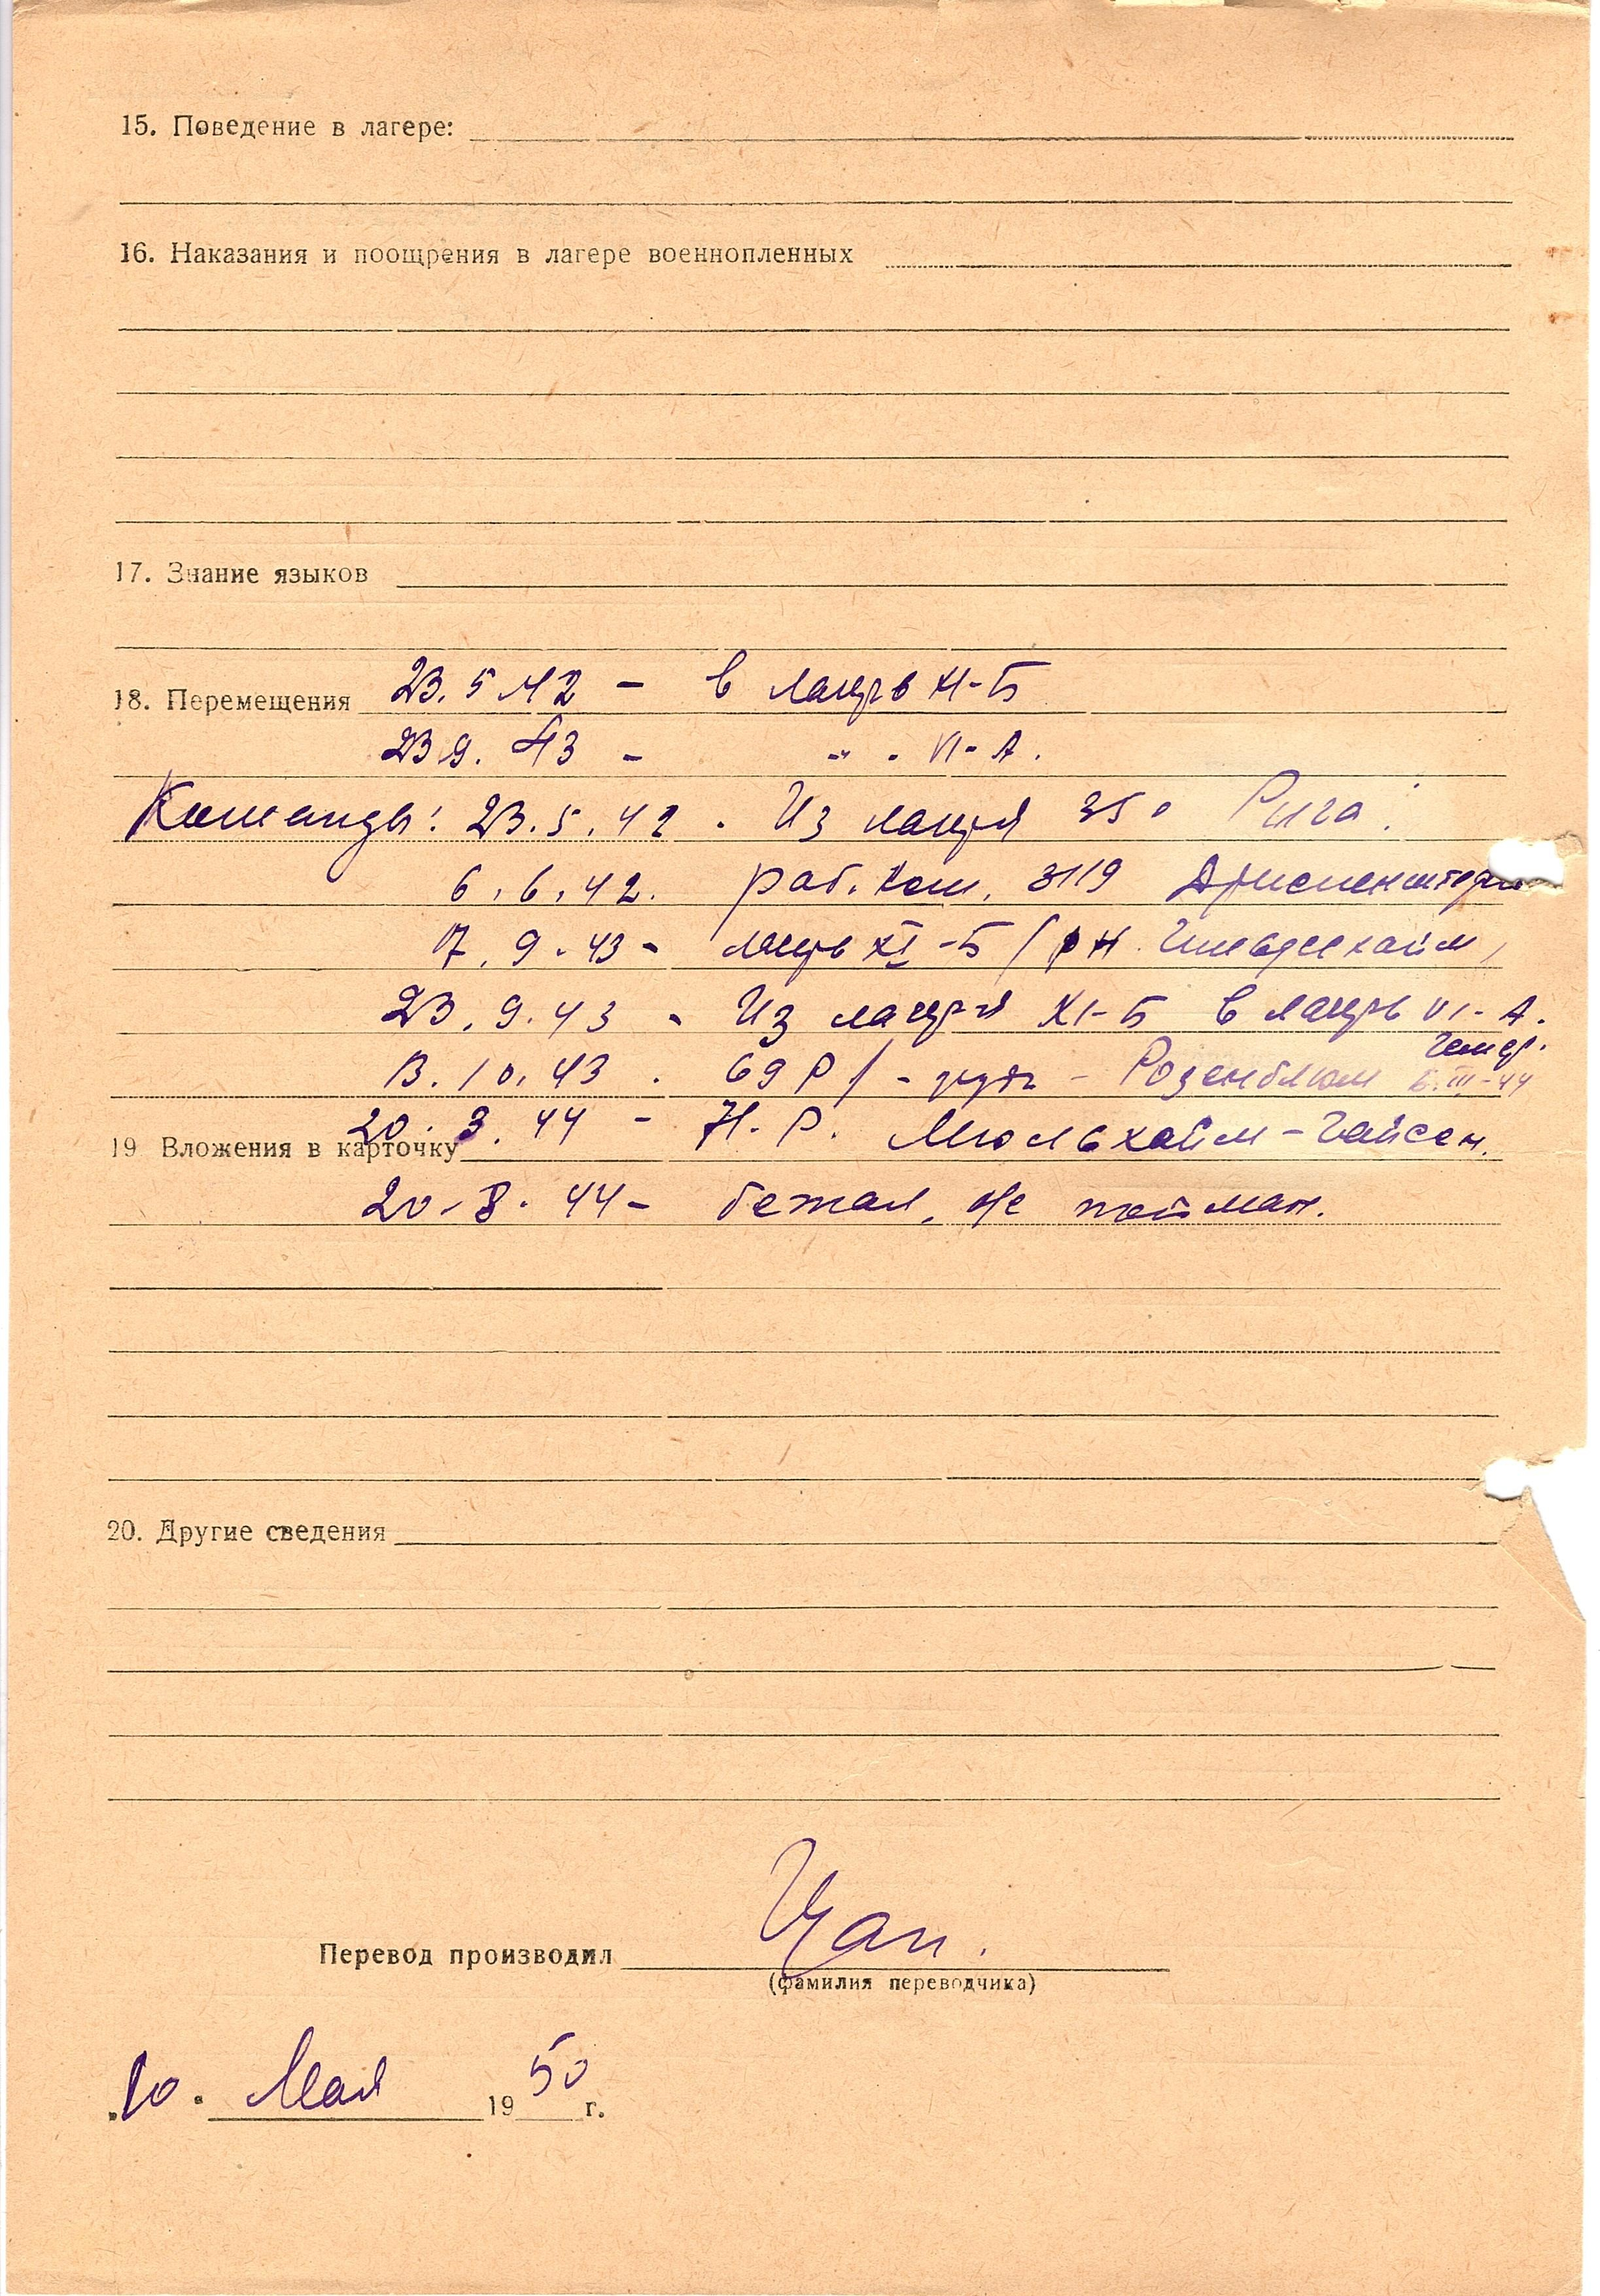 15. Поведение в лагере:
16. Наказания и поощрения в лагере военнопленных
17. Знание языков
18. Перемещения 23. 5 42 – в лагерь XI-Б
23 9. 43 – -"- VI-А.
Команды: 23. 5. 42 . Из лагеря 350 Рига.
6. 6. 42. раб. ком. 3119
17. 9. 43 - лагерь XI-Б
23. 9. 43 - Из лагеря XI-Б в лагерь VI-А.
13. 10. 43 . 69 Р/ - Розенблюм III-44
20. 3. 44 - Н. Р. Мюльхайм-
19 Вложения в карточку
20. 8. 44 - бежал, не пойман.
20. Другие сведения
Перевод производил
(фамилия переводчика)
10. Мая 1950 г.